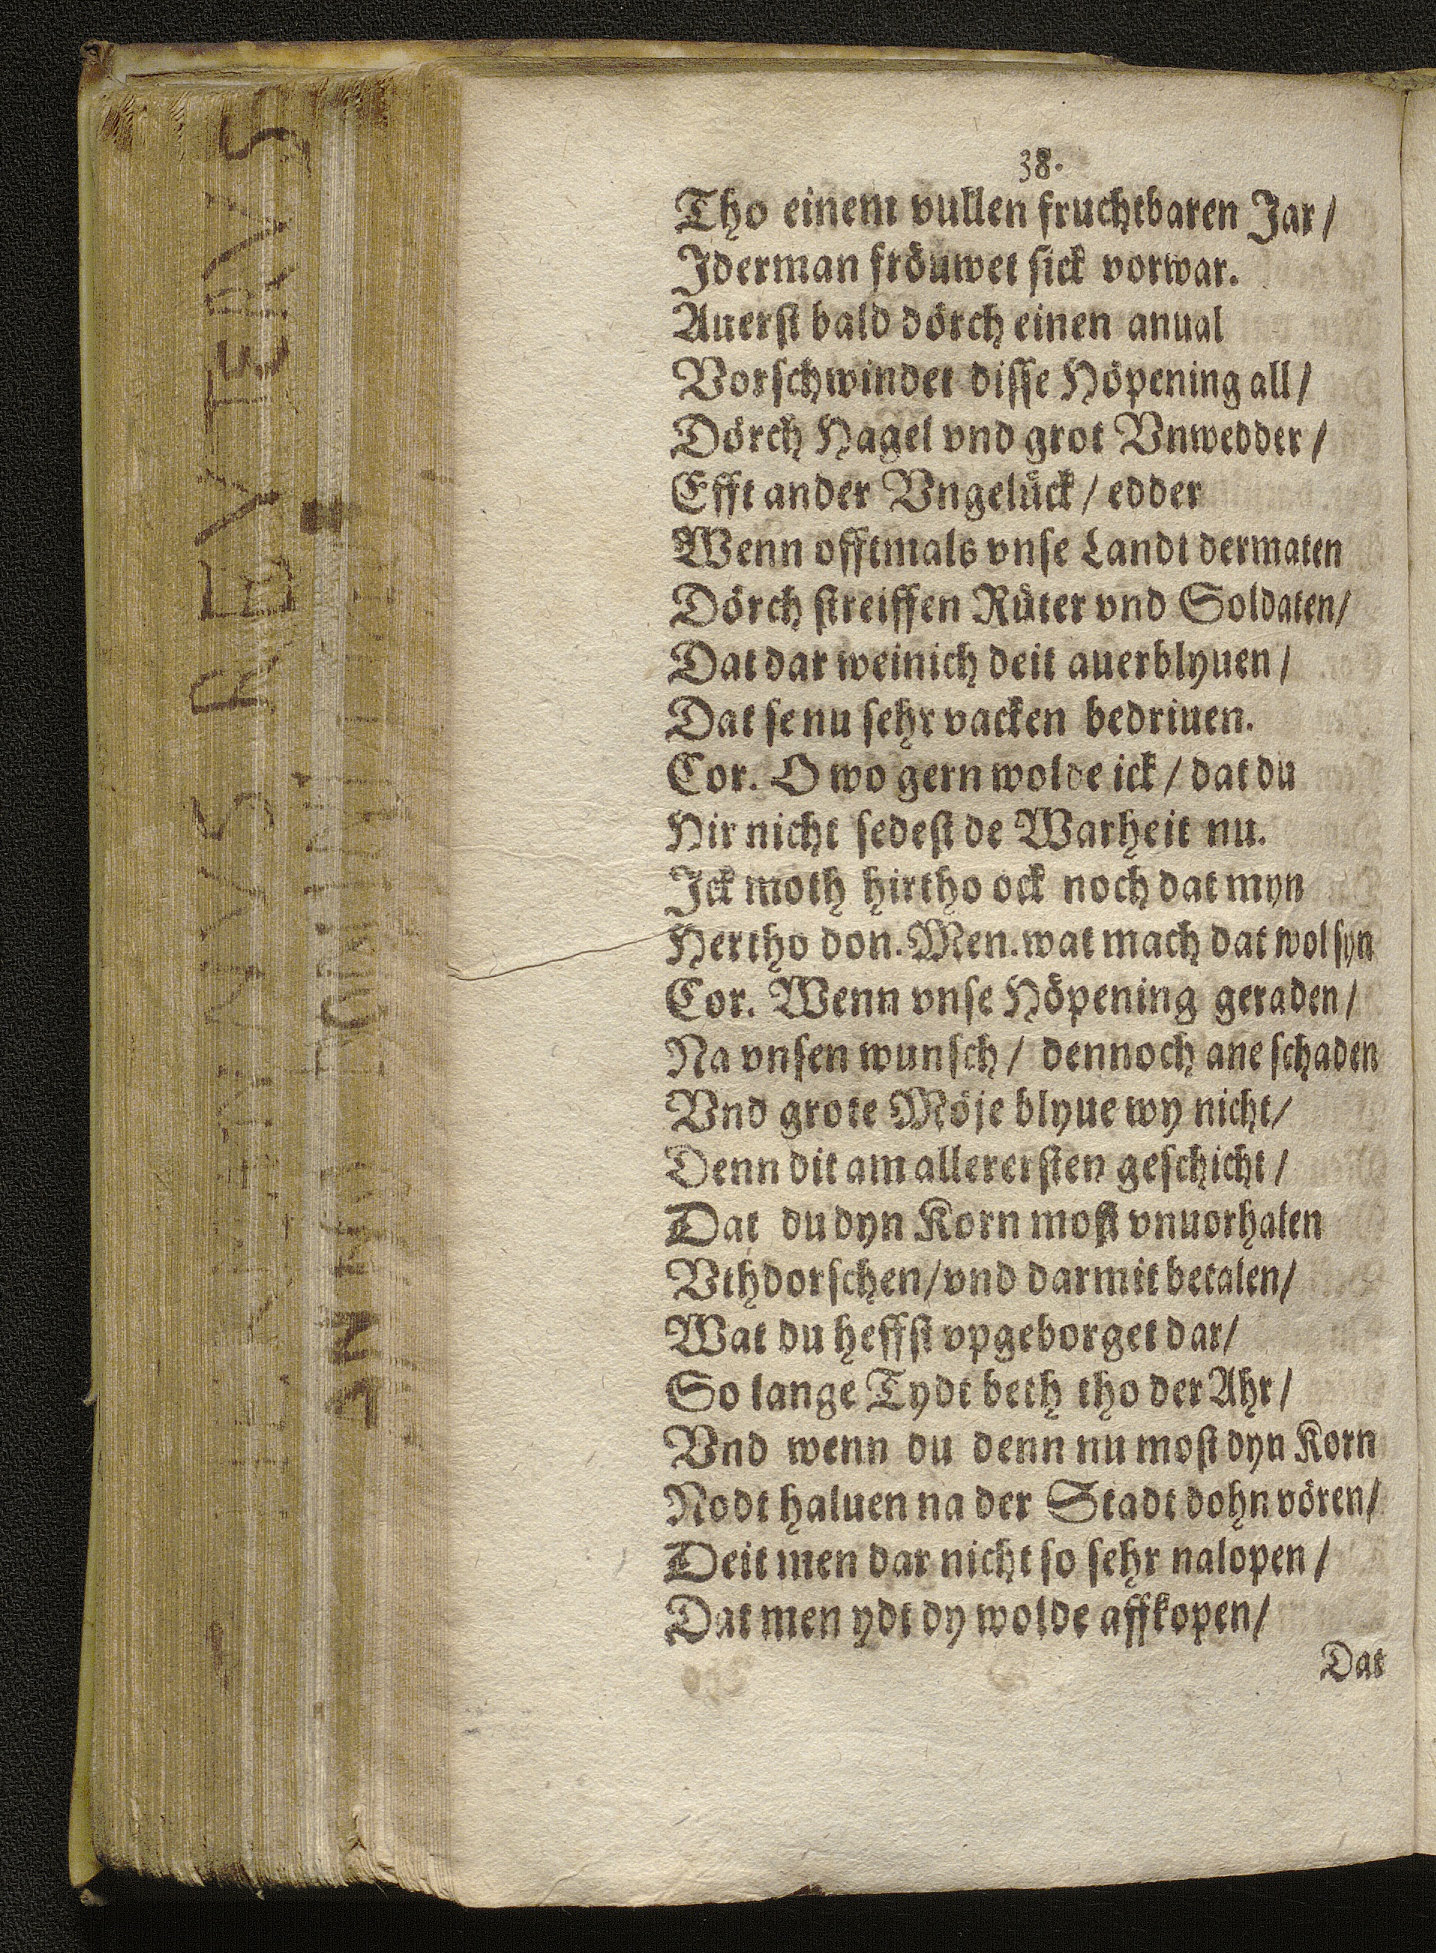 38.
Tho einem vullen fruchtbaren Jar/
Jderman fröuwet sick vorwar.
Auerst bald dörch einen anual
Vorschwindet disse Höpening all/
Dörch Hagel vnd grot Vnwedder/
Efft ander Vngelück/ edder
Wenn offtmals vnse Landt dermaten
Dörch streiffen Rüter vnd Soldaten/
Dat dar weinich deit auerblyuen/
Dat se nu sehr vacken bedriuen.
Cor. O wo gern wolde ick/ dat du
Hir nicht sedest de Warheit nu.
Jck moth hirtho ock noch dat myn
Hertho don. Men. wat mach dat wol syn
Cor. Wenn vnse Höpening geraden/
Na vnsen wunsch/ dennoch ane schaden
Vnd grote Möje blyue wy nicht/
Denn dit am allerersten geschicht/
Dat du dyn Korn most vnuorhalen
Vthdorschen/ vnd darmit betalen/
Wat du heffst vpgeborget dar/
So lange Tydt beth tho der Ahr/
Vnd wenn du denn nu most dyn Korn
Nodt haluen na der Stadt dohn vören/
Deit men dar nicht so sehr nalopen/
Dat men ydt dy wolde affkopen/
Dat